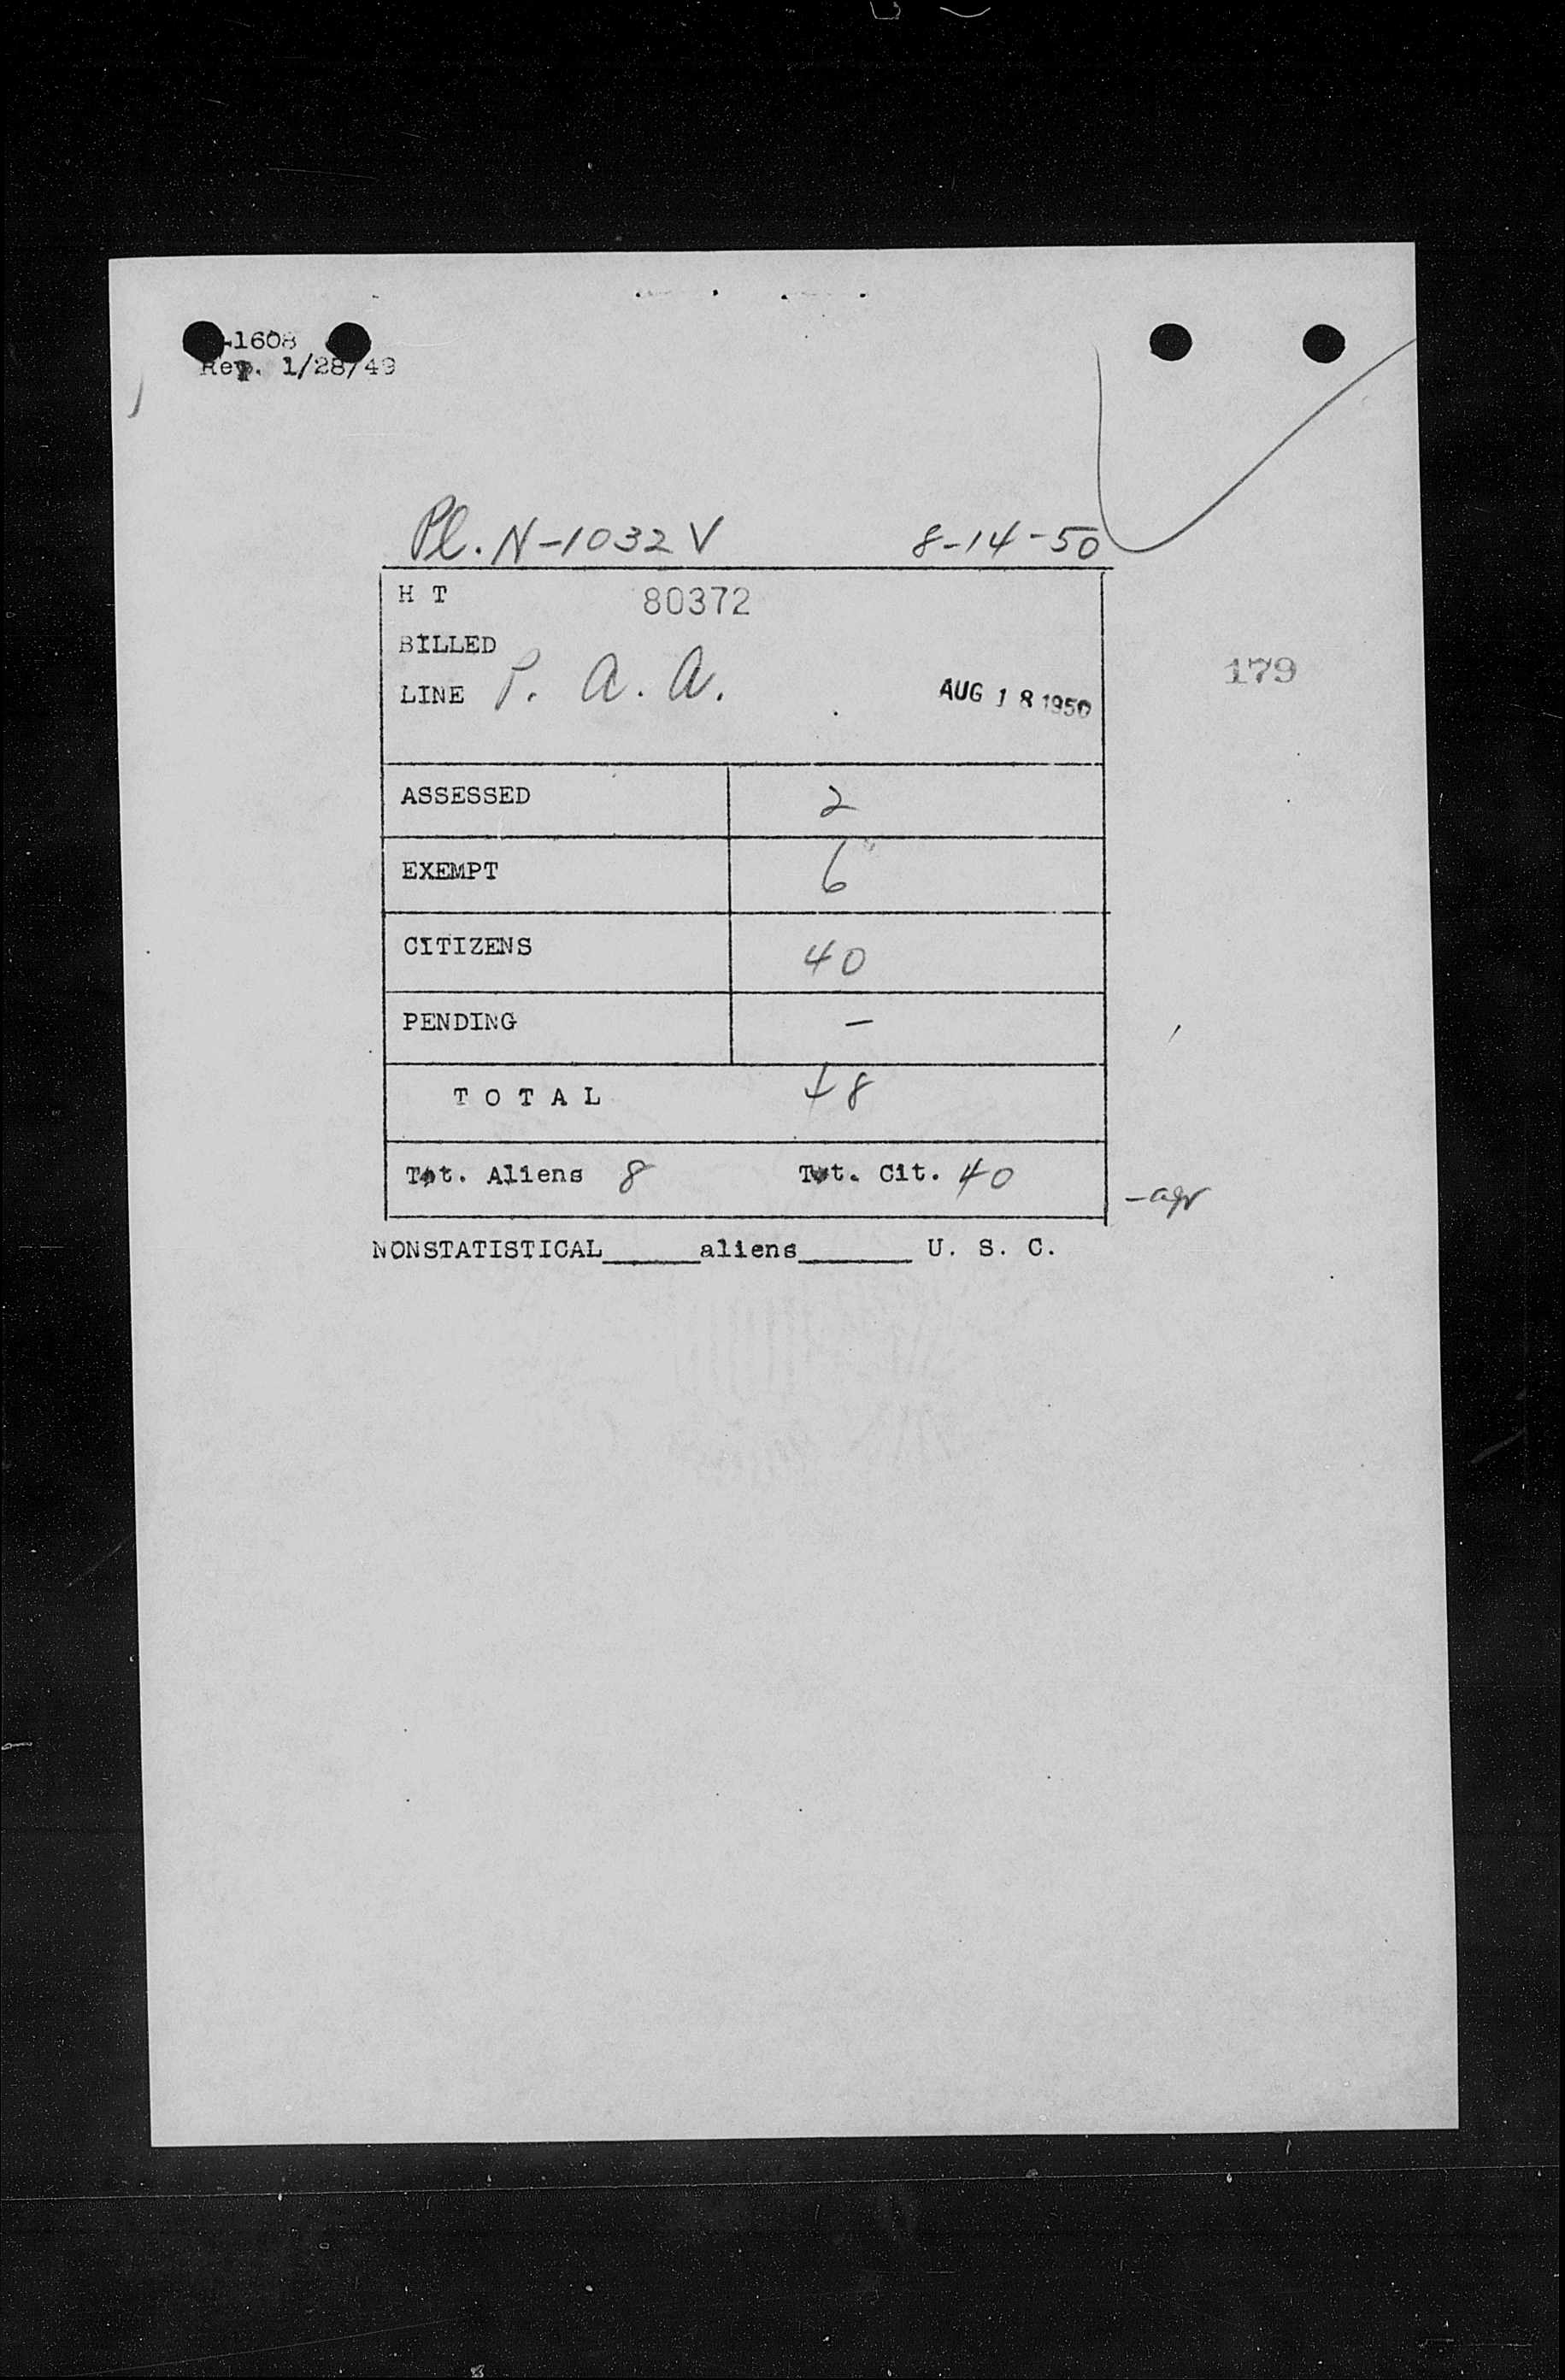 -1608
Rep. 1/28/49
Pl. N-1032 V 8-14-50
H T 80372
BILLED
LINE P. A. A. AUG 18 1950
179
ASSESSED 2
EXEMPT 6
CITIZENS 40
PENDING -
TOTAL 48
Tot. Aliens 8 Tot. Cit. 40
NONSTATISTICAL_____aliens______ U. S. C.